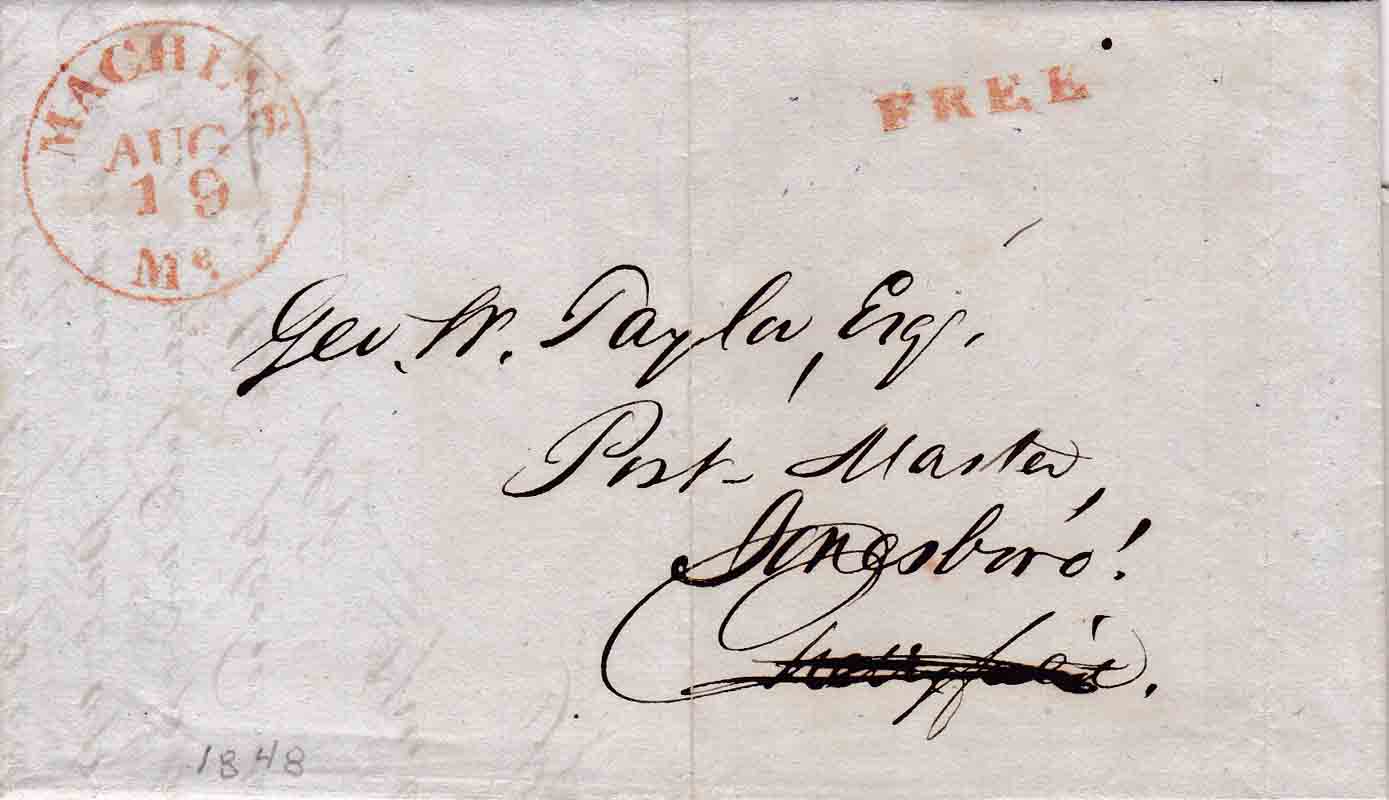 MACHIAS
AUG
19
Me.
FREE
Geo. W. Taylor, Esq.,
Post-Master,
Jonesboro'!
Cherryfield.
1848